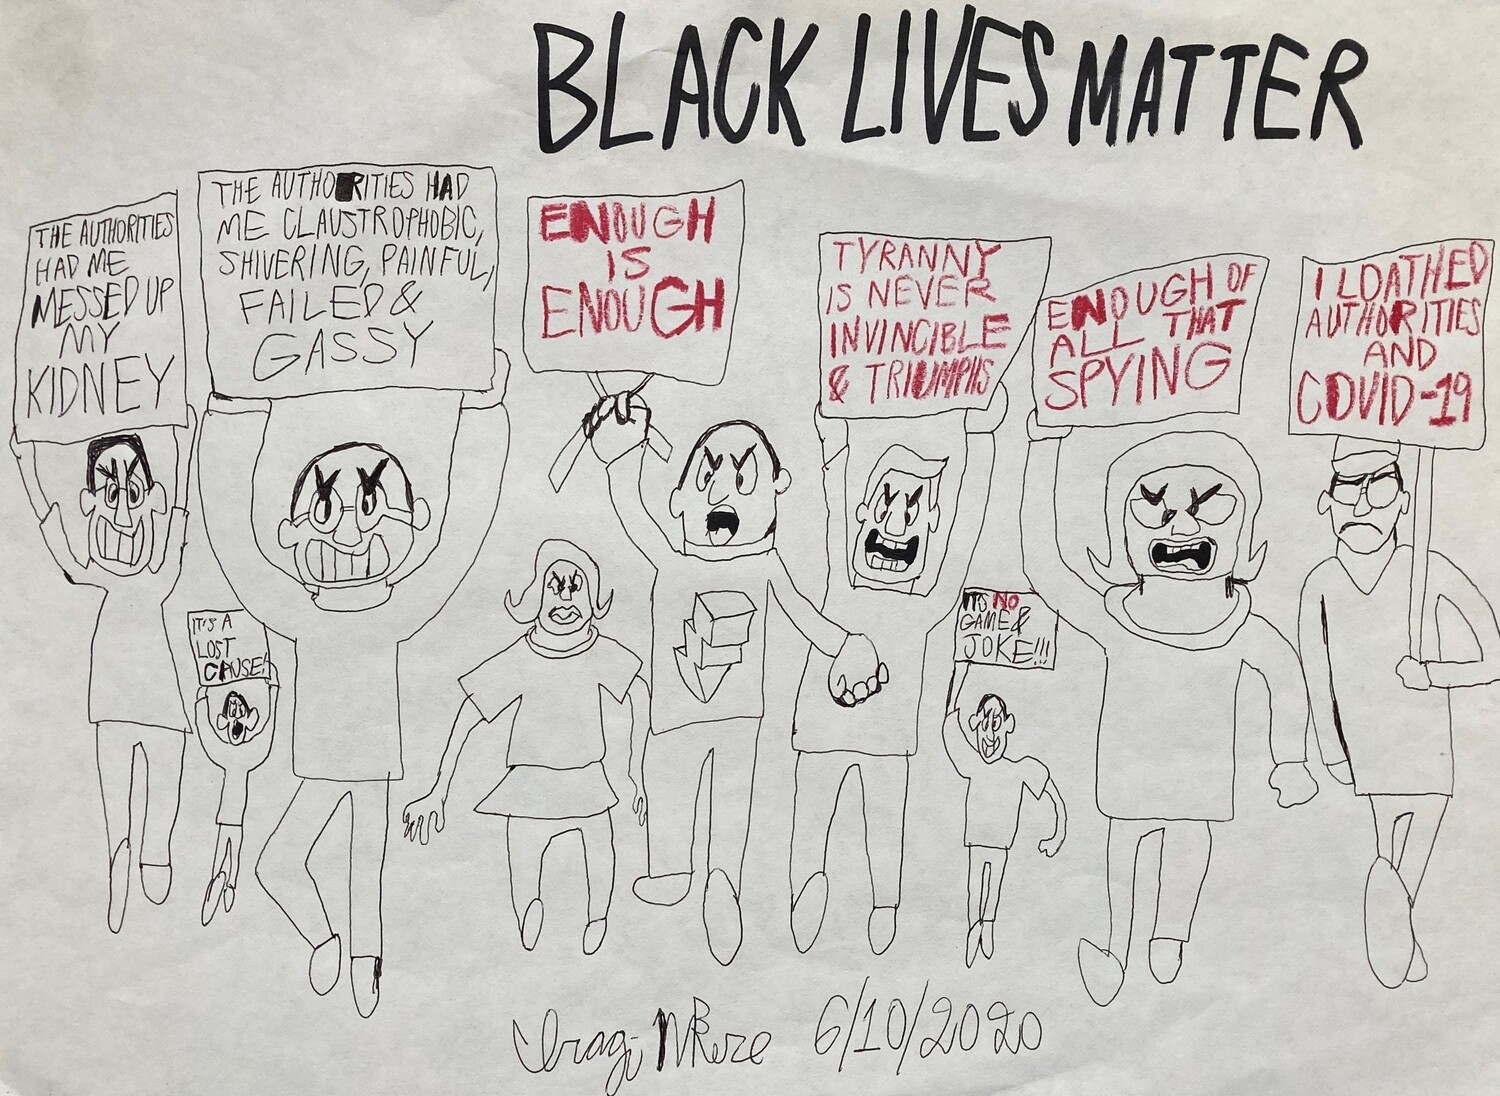 BLACK LIVES MATTER
THE AUTHORITIES
HAD ME
MESSED UP
MY
KIDNEY
THE AUTHORITIES HAD
ME CLAUSTROPHOBIC,
SHIVERING, PAINFUL,
FAILED &
GASSY
ENOUGH
IS
ENOUGH
TYRANNY
IS NEVER
INVINCIBLE
& TRIUMPHS
ENOUGH OF
ALL THAT
SPYING
I LOATHED
AUTHORITIES
AND
COVID-19
IT'S A
LOST
CAUSE!
ITS NO
GAME &
JOKE!!!
6/10/2020